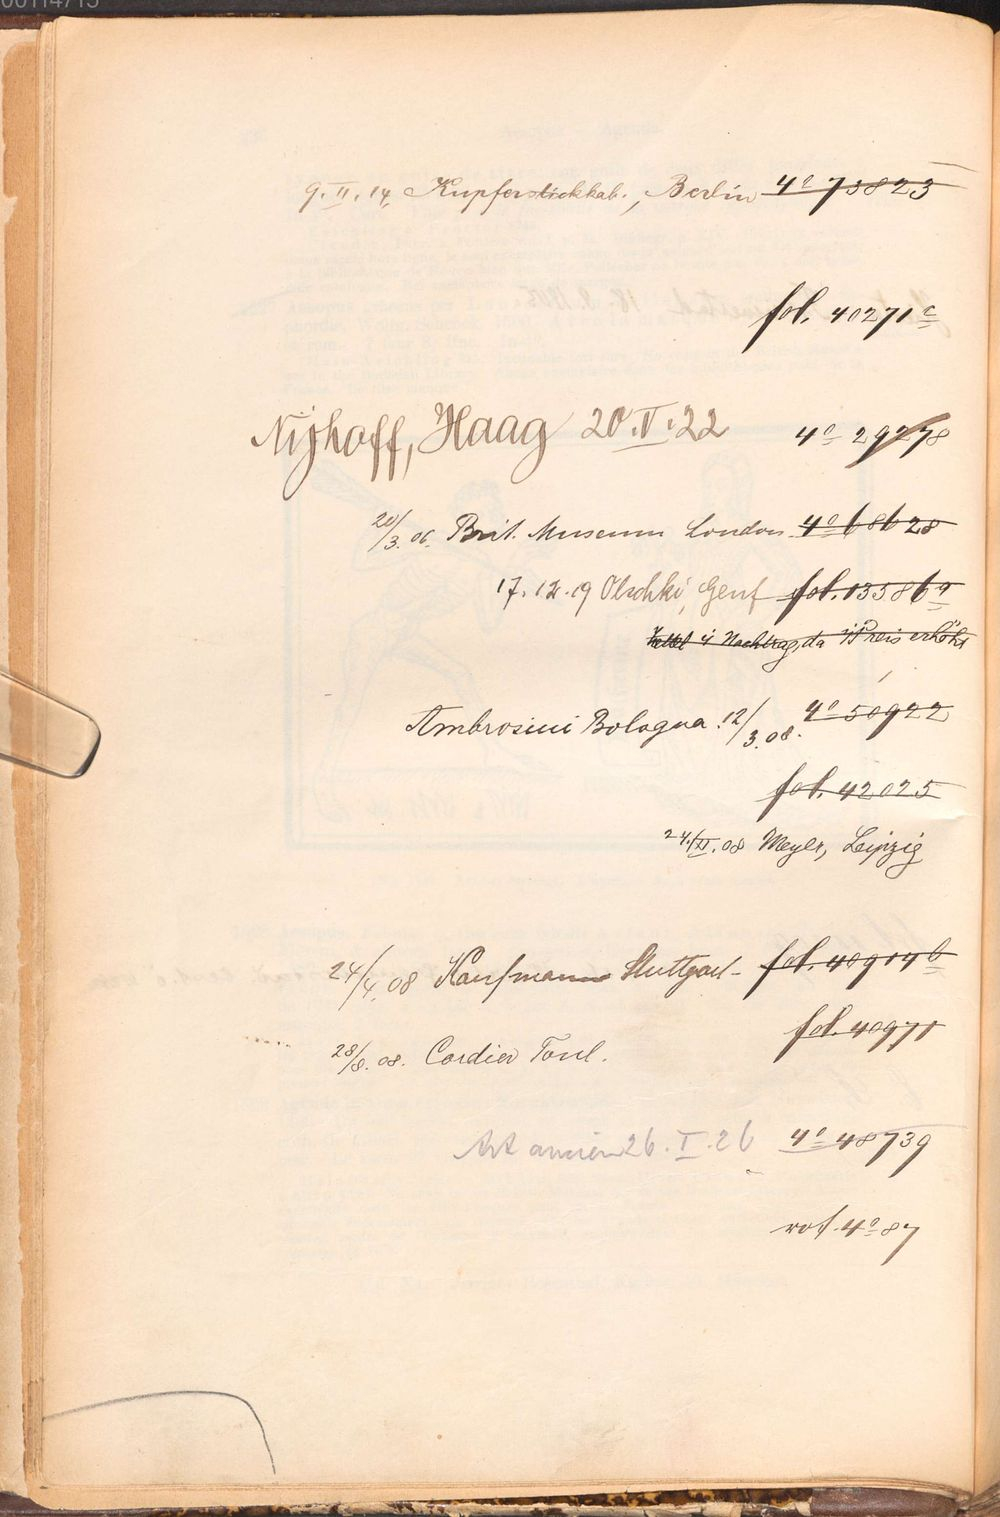 00114715
9. II. 14, Kupferstichkab., Berlin 4º 73823
fol. 40271 c
Nijhoff, Haag 20.V.22 4º 29278
20/3. 06. Brit. Museum London. 4º 68628
17.12.19 Olschki, Genf fol. 13586 a
Zettel i Nachtrag, da Preis erhöht
Ambrosini Bologna 12/3.08. 4º 50922
fol. 42025
24/II.08 Meyer, Leipzig
24/4. 08 Kaufmann Stuttgart - fol. 40904 b
fol. 40971
28/8. 08. Cordier Toul.
Art ancien 26.I.26 4º 48739
rot. 4º 87